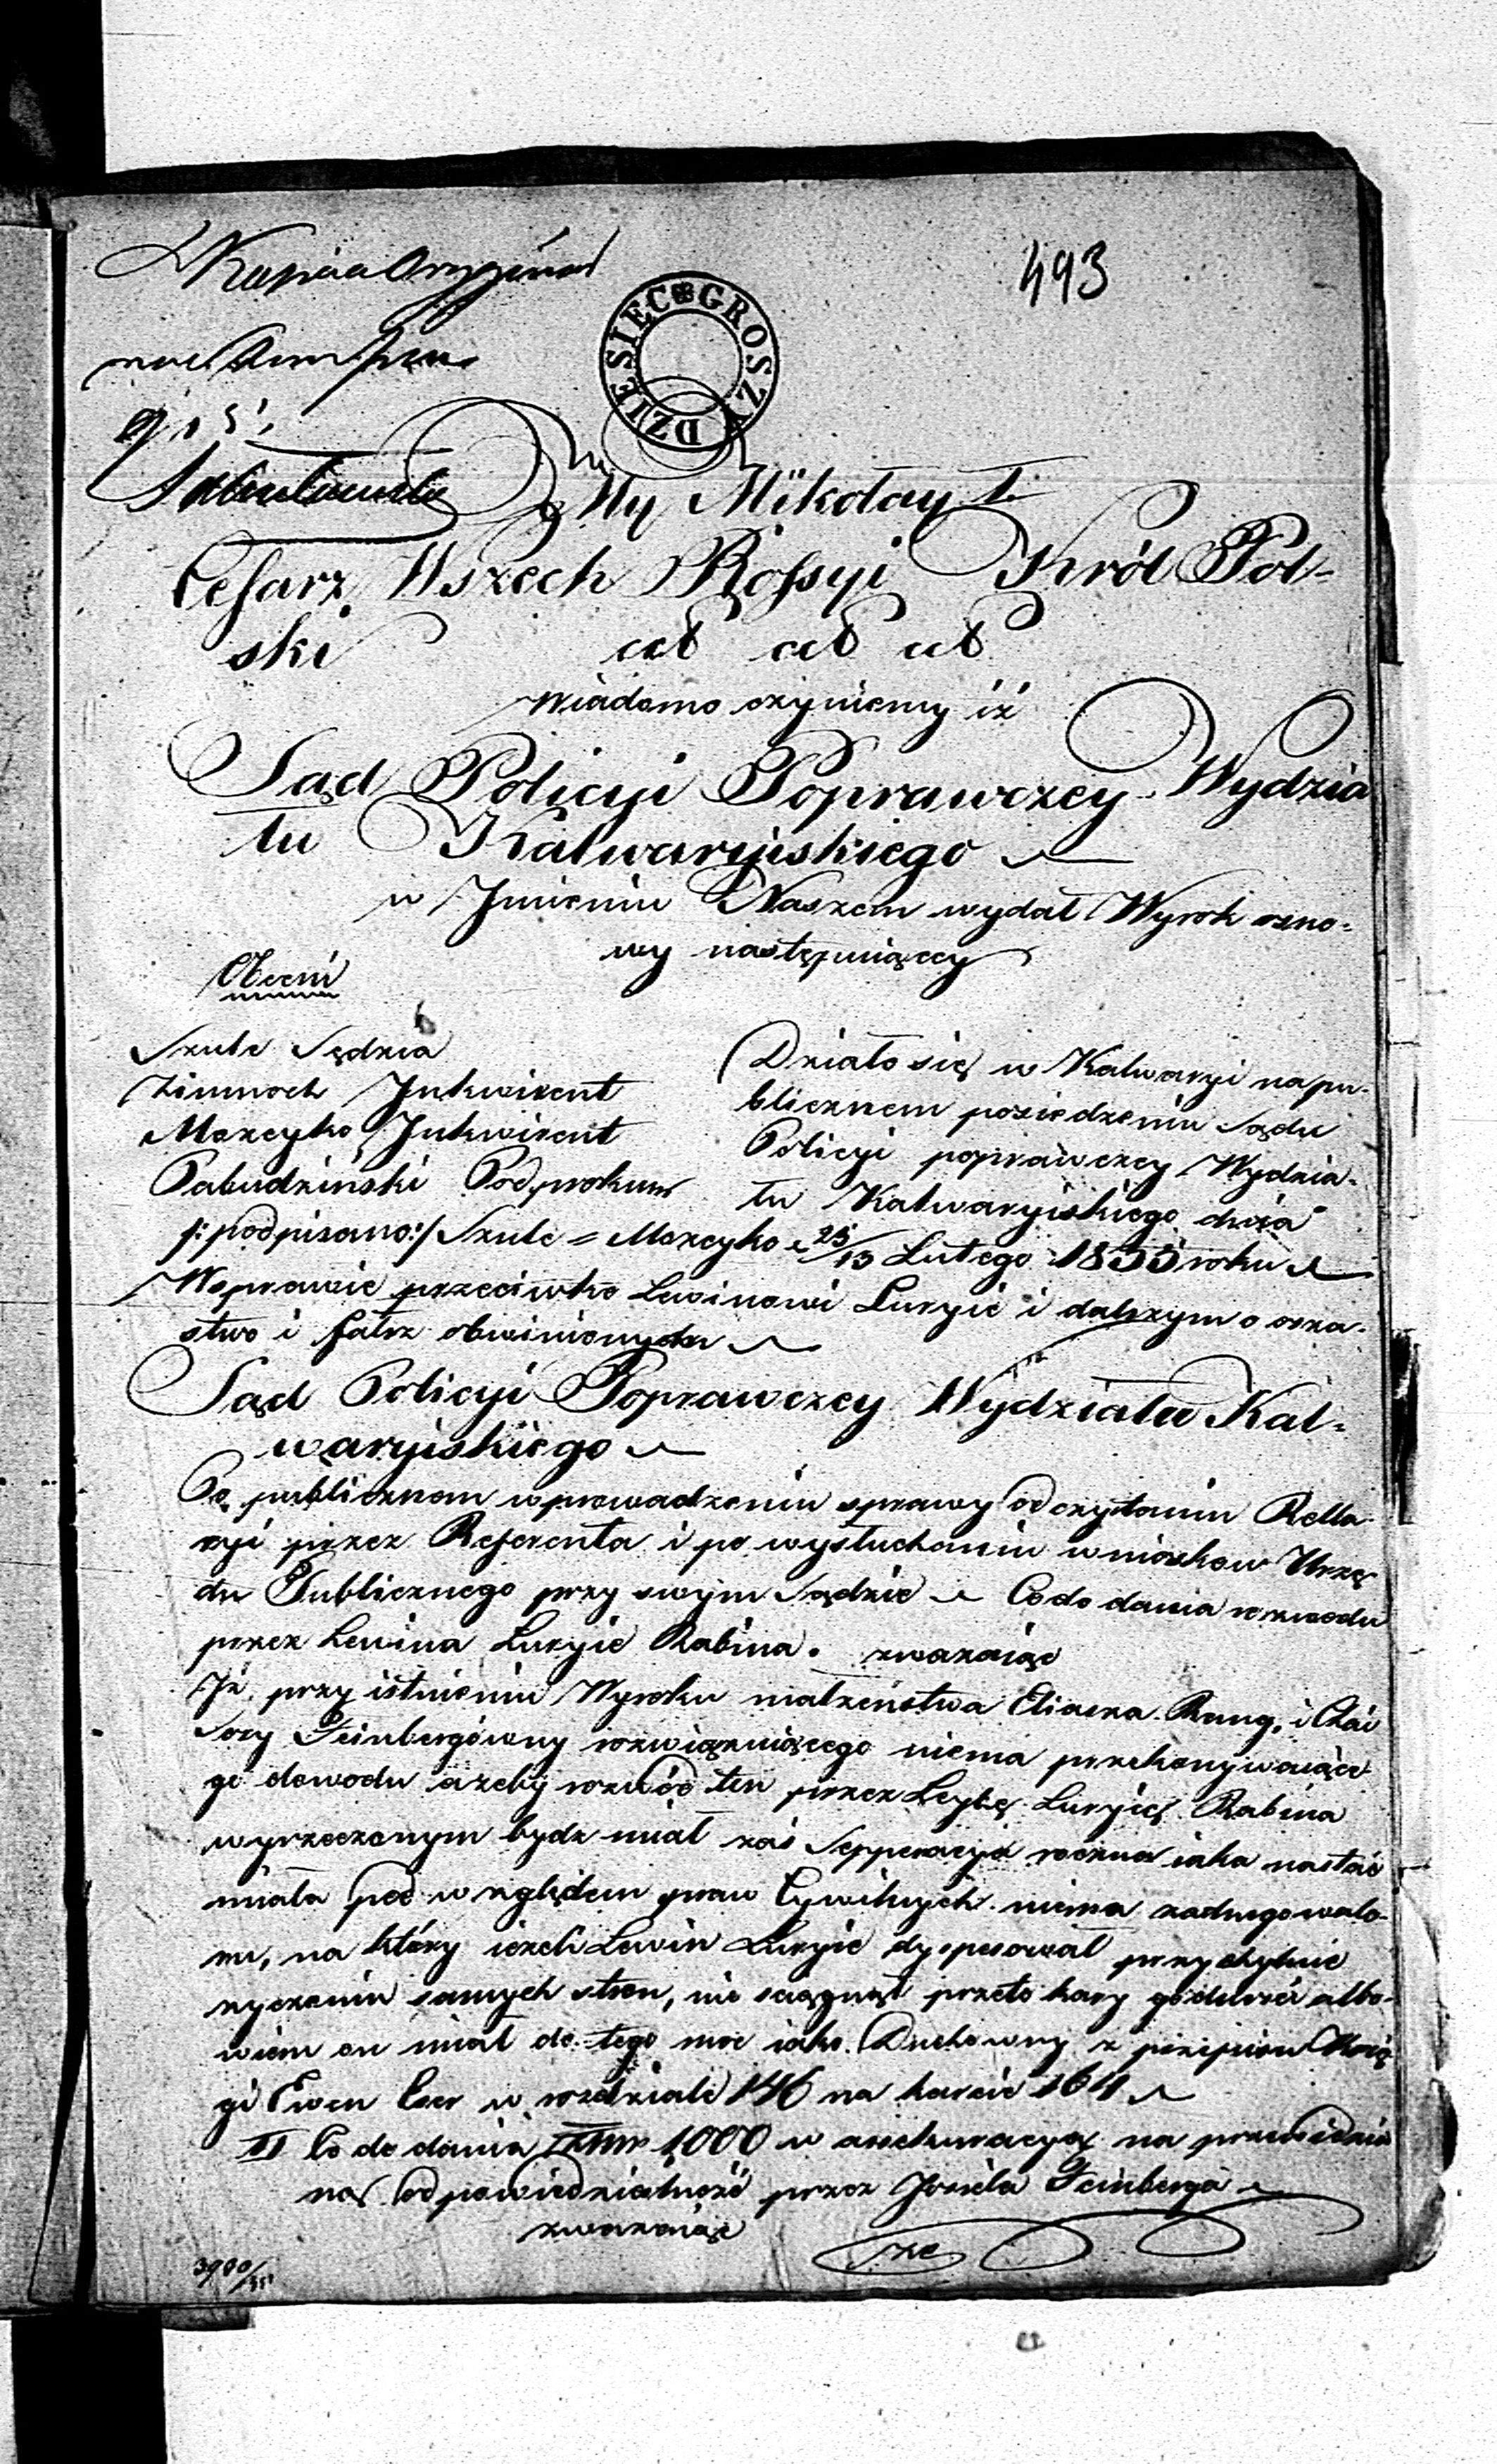 493
DZIESIĘĆ GROSZY
My Mikołay I.
Cesarz Wszech Rossyi Król Pol-
ski etc etc etc
Wiadomo czyniemy iż
Sąd Policyi Poprawczey Wydzia
łu Kalwaryiskiego
w Imieniu Naszem wydał Wyrok osno-
wy następuiącey
Obecni
Szulc Sędzia
Zimnoch Inkwirent
Moszeyko Inkwirent
Pabudziński Podprokur
/: podpisano :/ Szulc = Moszeyko
Działo się w Kalwaryi na pu-
blicznem posiedzeniu Sądu
Policyi poprawczey Wydzia-
łu Kalwaryiskiego dnia
25/13 Lutego 1835 roku
W sprawie przeciwko Lewinowi Luryie i dalszym o osza-
stwo i fałsz obwinionych
Sąd Policyi Poprawczey Wydziału Kal-
waryiskiego
Po publicznem wprowadzeniu sprawy odczytaniu Rella
cyi przez Referenta i po wysłuchaniu wnioskow Urzę
du Publicznego przy swym Sądzie Co do dania rozwodu
przez Lewina Luryie Rabina. zważaiąc
Iż przy istnieniu Wyroku małżeństwa Eliasza Rung, i Chai
Sory Feinbergówny rozwiązuiącego niema przekonywaiące
go dowodu ażeby rozwód ten przez Leybę Luryię Rabina
wyrzeczonym bydz miał zaś Sepperacya roczna iaka nastać
miała pod względem praw Cywilnych niema żadnego walo-
ru, na który ieżeli Lewin Luryie dyspesował przychylnie
życzeniu samych stron, nie ściągnął przeto kary godności albo-
wiem on miał do tego moc iako Duchowny z przepisu Księ
gi Ewen Eser w rozdziale 146 na karcie 164
II Co do dania 1000 w assekuracyą na przewidzia
ną odpowiedzialność przez Josiela Feinberga
zważaiąc
3980/35